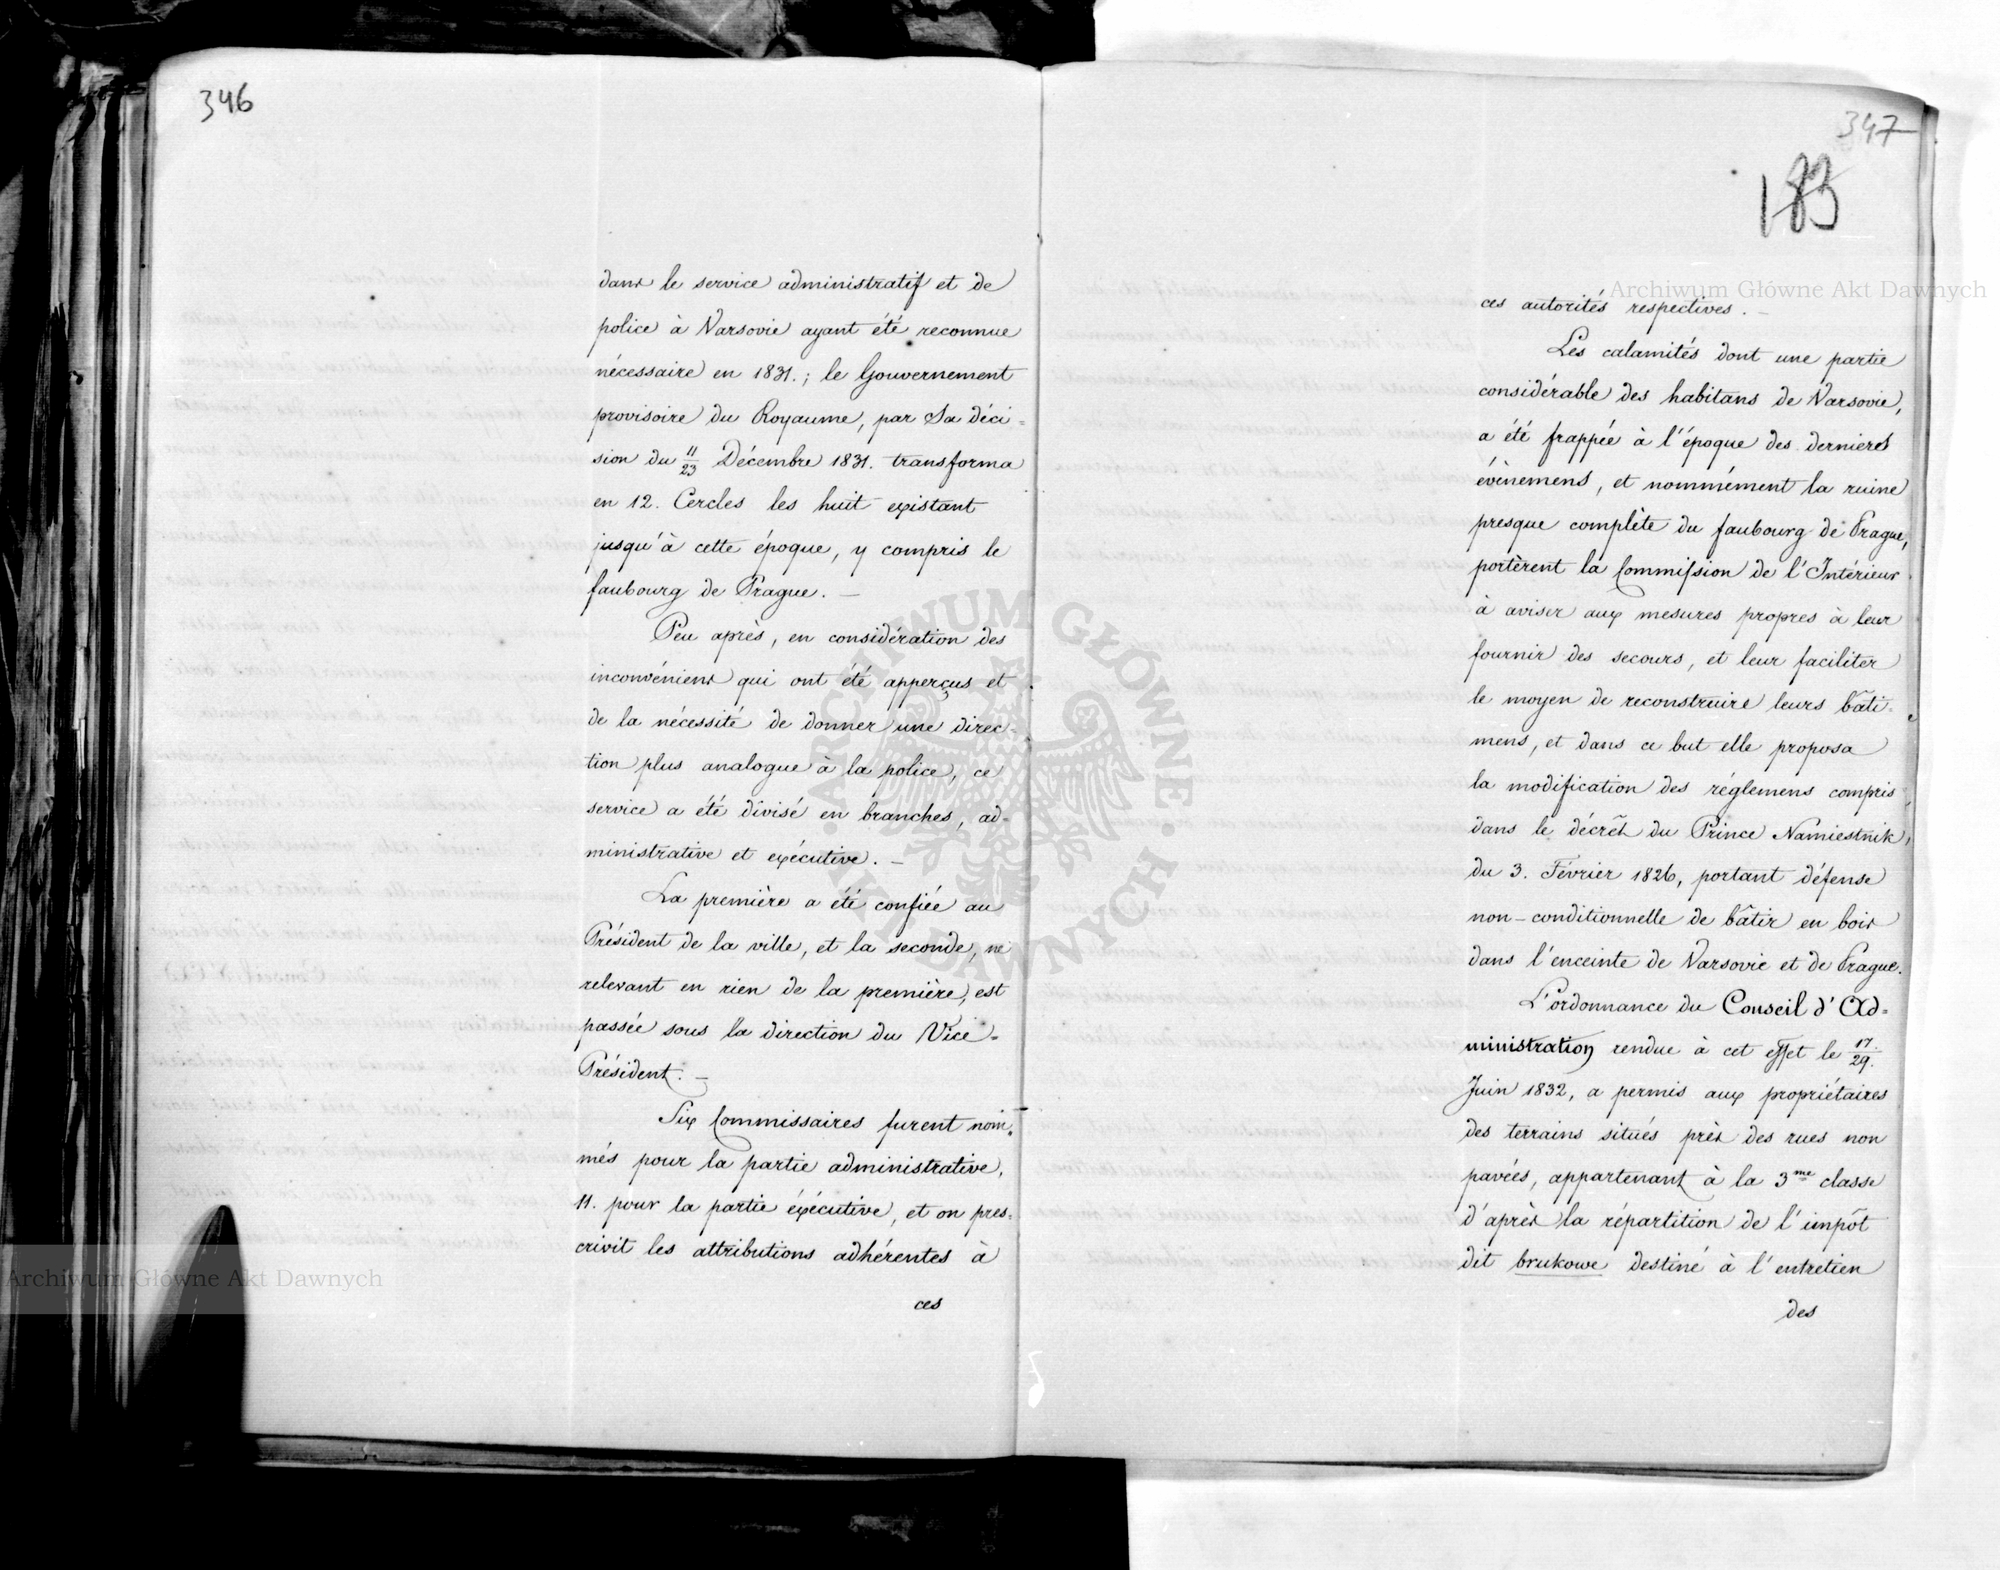 346
dans le service administratif et de
police à Varsovie ayant été reconnue
nécessaire en 1831.; le Gouvernement
provisoire du Royaume, par Sa déci=
sion du 11/23 Décembre 1831. transforma
en 12. Cercles les huit existant
jusqu'à cette époque, y compris le
faubourg de Prague. —
Peu après, en considération des
inconvéniens qui ont été apperçus et
de la nécessité de donner une direc-
tion plus analogue à la police, ce
service a été divisé en branches, ad-
ministrative et exécutive. —
La première a été confiée au
Président de la ville, et la seconde, ne
relevant en rien de la première, est
passée sous la direction du Vice-
Président. —
Six Commissaires furent nom=
més pour la partie administrative,
11. pour la partie éxécutive, et on pres=
crivit les attributions adhérentes à
ces
347
183
ces autorités respectives. —
Les calamités dont une partie
considérable des habitans de Varsovie,
a été frappée à l'époque des derniers
évènemens, et nommément la ruine
presque complète du faubourg de Prague,
portèrent la Commission de l'Intérieur
à aviser aux mesures propres à leur
fournir des secours, et leur faciliter
le moyen de reconstruire leurs bâti=
mens, et dans ce but elle proposa
la modification des réglemens compris
dans le décrêt du Prince Namiestnik,
du 3. Février 1826, portant défense
non-conditionnelle de bâtir en bois
dans l'enceinte de Varsovie et de Prague.
L'ordonnance du Conseil d'Ad=
ministration rendue à cet effet le 17/29.
Juin 1832, a permis aux propriétaires
des terrains situés près des rues non
pavées, appartenant à la 3me classe
d'après la répartition de l'impôt
dit brukowe destiné à l'entretien
des
Archiwum Główne Akt Dawnych
Archiwum Główne Akt Dawnych
ARCHIWUM GŁÓWNE AKT DAWNYCH